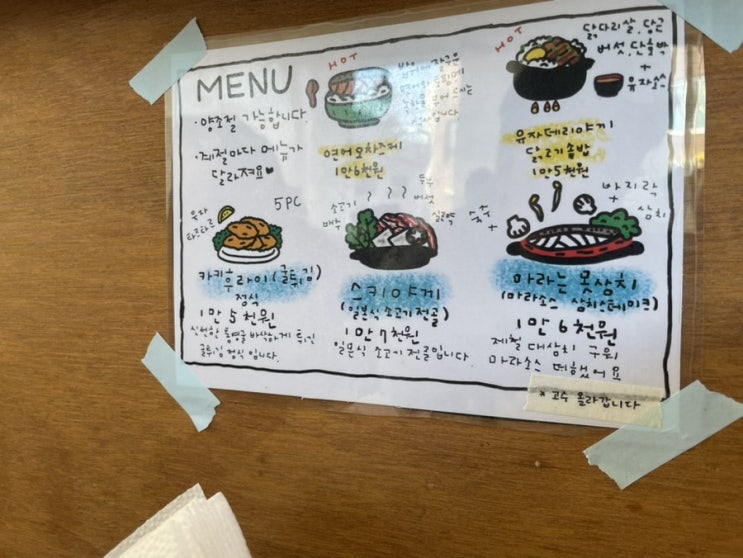 MENU
· 양조절 가능합니다.
· 계절마다 메뉴가
달라져요♥
HOT
연어 오차즈케
1만6천원
HOT
닭다리살, 당근
버섯, 단호박
+
유자소스
유자데리야끼
닭고기솥밥
1만5천원
유자
타르타르
5PC
카키후라이(굴튀김)
정식
1만 5천원
신선한 통영굴 바삭하게 튀긴
굴튀김 정식 입니다.
소고기
배추
두부
버섯
스키야끼
(일본식 소고기 전골)
1만 7천원
일본식 소고기 전골입니다
숙주
+
바지락
+
삼치
마라는 못삼치
(마라소스 삼치스테이크)
1만 6천원
제철 대삼치 구워
마라소스 더했어요
* 고수 올라갑니다